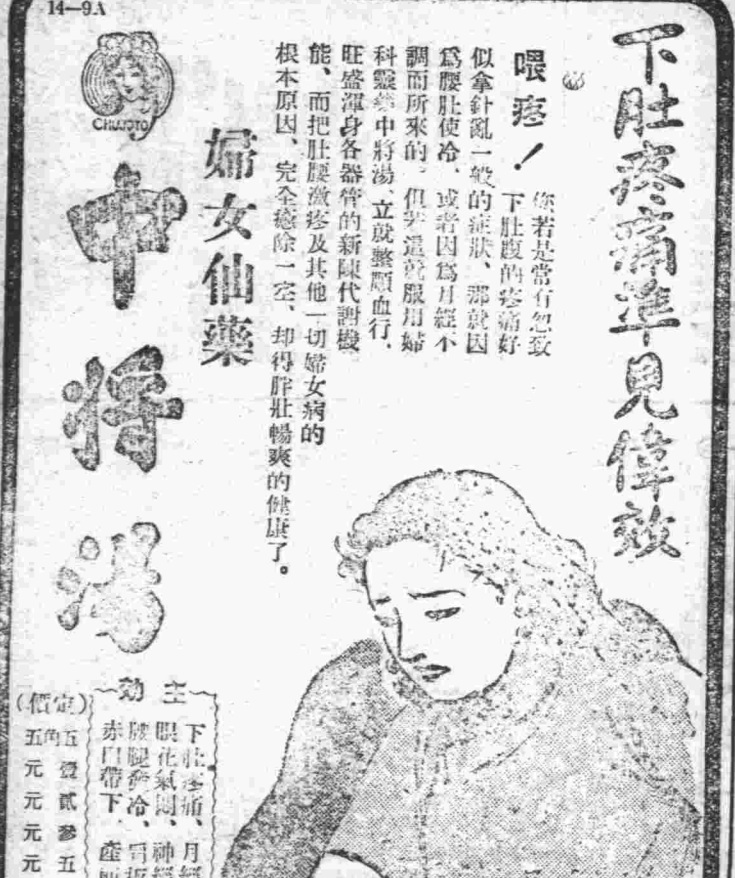 14—9A
下肚疼痛準見偉效
喂疼！
您若是常有忽致
下肚腹的疼痛好
似拿針亂一般的症狀、那就因
爲腰肚使冷、或者因爲月經不
調而所來的。但若這就服用婦
科靈藥中將湯、立就整順血行、
旺盛渾身各器管的新陳代謝機
能、而把肚腰激疼及其他一切婦女病的
根本原因、完全癒除一空、却得胖壯暢爽的健康了。
婦女仙藥
CHUJOTO
中將湯
主効
下肚疼痛、月經
眼花氣悶、神經
腰腿發冷、
赤白帶下、產
(定價)
五壹貳參五
角
五元元元元